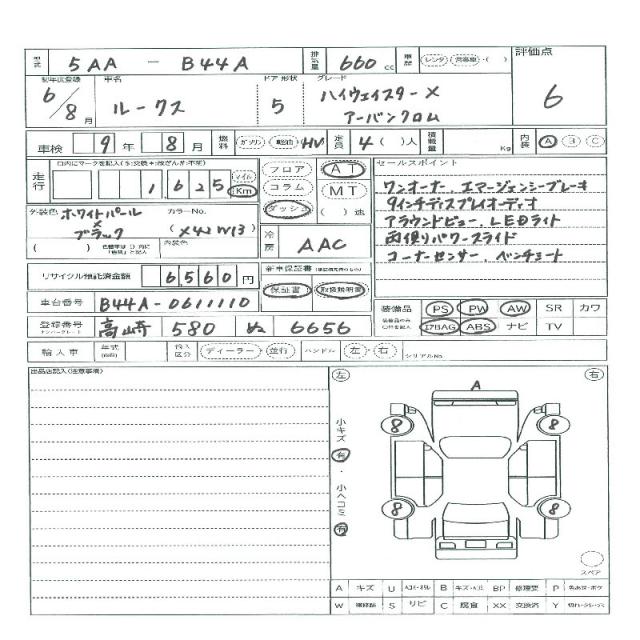 型式 5AA - B44A 排気量 660 cc 車歴 レンタ・営業車・( ) 評価点
初年度登録 車名 ドア 形状 グレード
6/8月 ルークス 5 ハイウェイスターX アーバンクロム 6
車検 9年 8月 燃料 ガソリン 軽油 HV 定員 4( )人 積載量 Kg 内装 A B C
走行 1 625 マイル Km
フロア コラム ダッシュ AT MT ( )速
セールスポイント
ワンオーナー、エマージェンシーブレーキ
9インチディスプレイオーディオ
アラウンドビュー、LEDライト
両側パワースライド
コーナーセンサー、ベンチシート
外装色 ホワイトパール×ブラック カラーNo. 内装色
冷房 AAC
リサイクル預託済金額 6560円 新車保証書 保証書・取扱説明書
車台番号 B44A-0611110 装備品 PS PW AW SR カワ
登録番号 高崎 580 ぬ 6656 エアBAG ABS ナビ TV
輸入車 年式 輸入区分 ディーラー・並行 ハンドル 左・右 シリアルNo.
出品店記入(注意事項)
左 右
A
8 8
小キズ 有・小ヘコミ 有
8 8
スペア
A キズ U B BP 修理要 P
W S サビ C 腐食 XX 交換済 Y